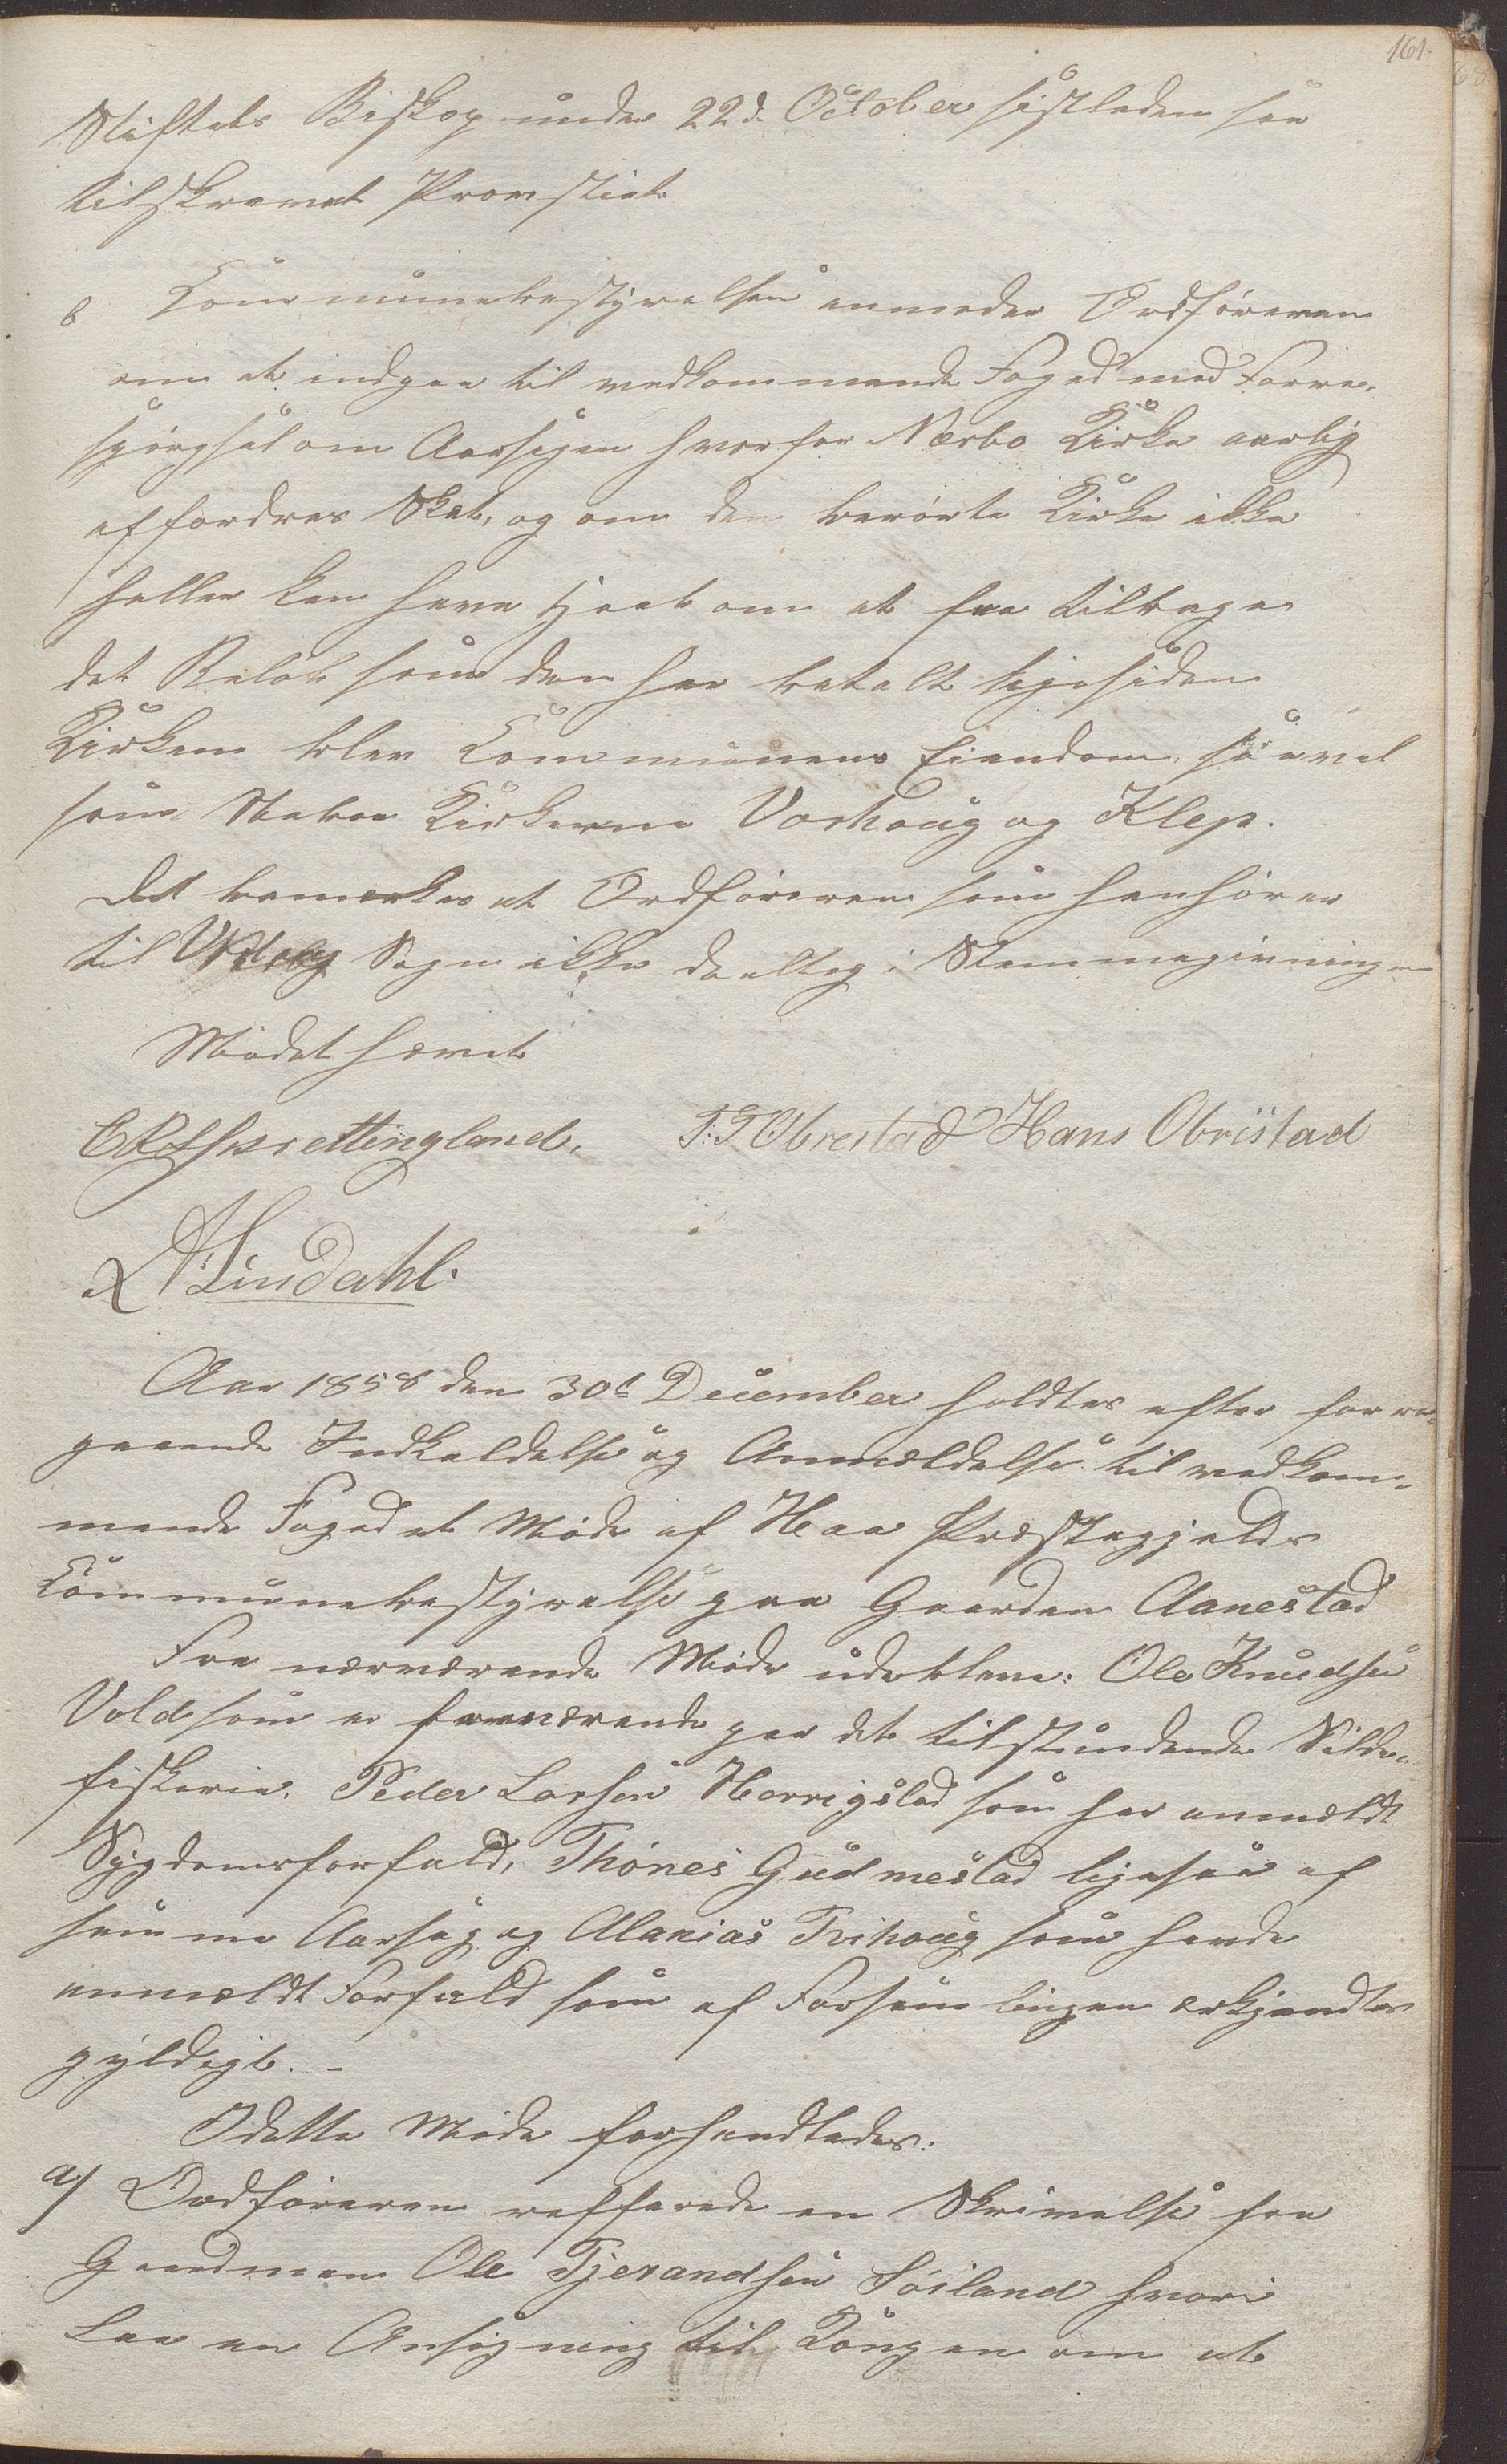 161.
Stiftets Biskop under 22d. October sistleden har
tilskrevet Provstiet
b Communebestyrelsen anmoder Ordføreren
om at indgaa til vedkommende Foged med Fore-
spørgsel om Aarsagen hvorfor Nærbø Kirke aarlig
affordres Skat, og om den berørte Kirke ikke
heller kan have Havt om at faa tilbage
det Beløb som den har betalt ligesiden
Kirken blev Communens Eiendom, saavel
som Kirkerne Varhoug og Klep.
Det bemærkes at Ordføreren som henhører
til Sogn ikke deeltog i Stemmegivningen
Mødet hævet
Tettingland. T: T Obrestad Hans Obristad
Lindahl.
Aar 1858 den 30te December holdtes efter fore-
gaaende Indkaldelse og Anmældelse til vedkom-
mende Foged et Møde af Haa Præstegjelds
Communebestyrelse paa Gaarden Aanestad
Fra nærværende Møde udebleve: Ole Knudsen
Vold som er fraværende paa det tilstundende Silde-
fiskerie. Peder Larsen Herrigstad som har anmældt
Sygdomsforfald, Thönes Gudmestad ligesaa af
samme Aarsag og Ananias Tvihoug som havde
anmældt Forfald som af Forsamlingen erkjendtes
gyldigt. -
I dette Møde forhandledes:
a) Ordføreren refferede en Skrivelse fra
Gaardman Ole Tjerandsen Söiland hvori
laa en Ansøgning til Kongen om at